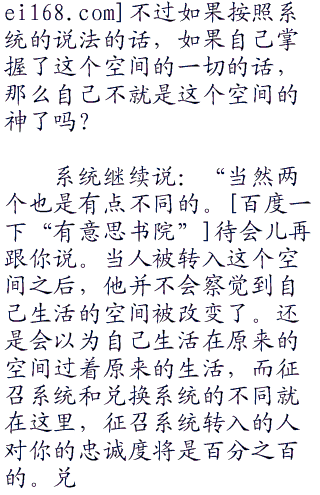 ei168.com]不过如果按照系
统的说法的话，如果自己掌
握了这个空间的一切的话，
那么自己不就是这个空间的
神了吗？
系统继续说：“当然两
个也是有点不同的。[百度一
下“有意思书院”]待会儿再
跟你说。当人被转入这个空
间之后，他并不会察觉到自
己生活的空间被改变了。还
是会以为自己生活在原来的
空间过着原来的生活，而征
召系统和兑换系统的不同就
在这里，征召系统转入的人
对你的忠诚度将是百分之百
的。兑